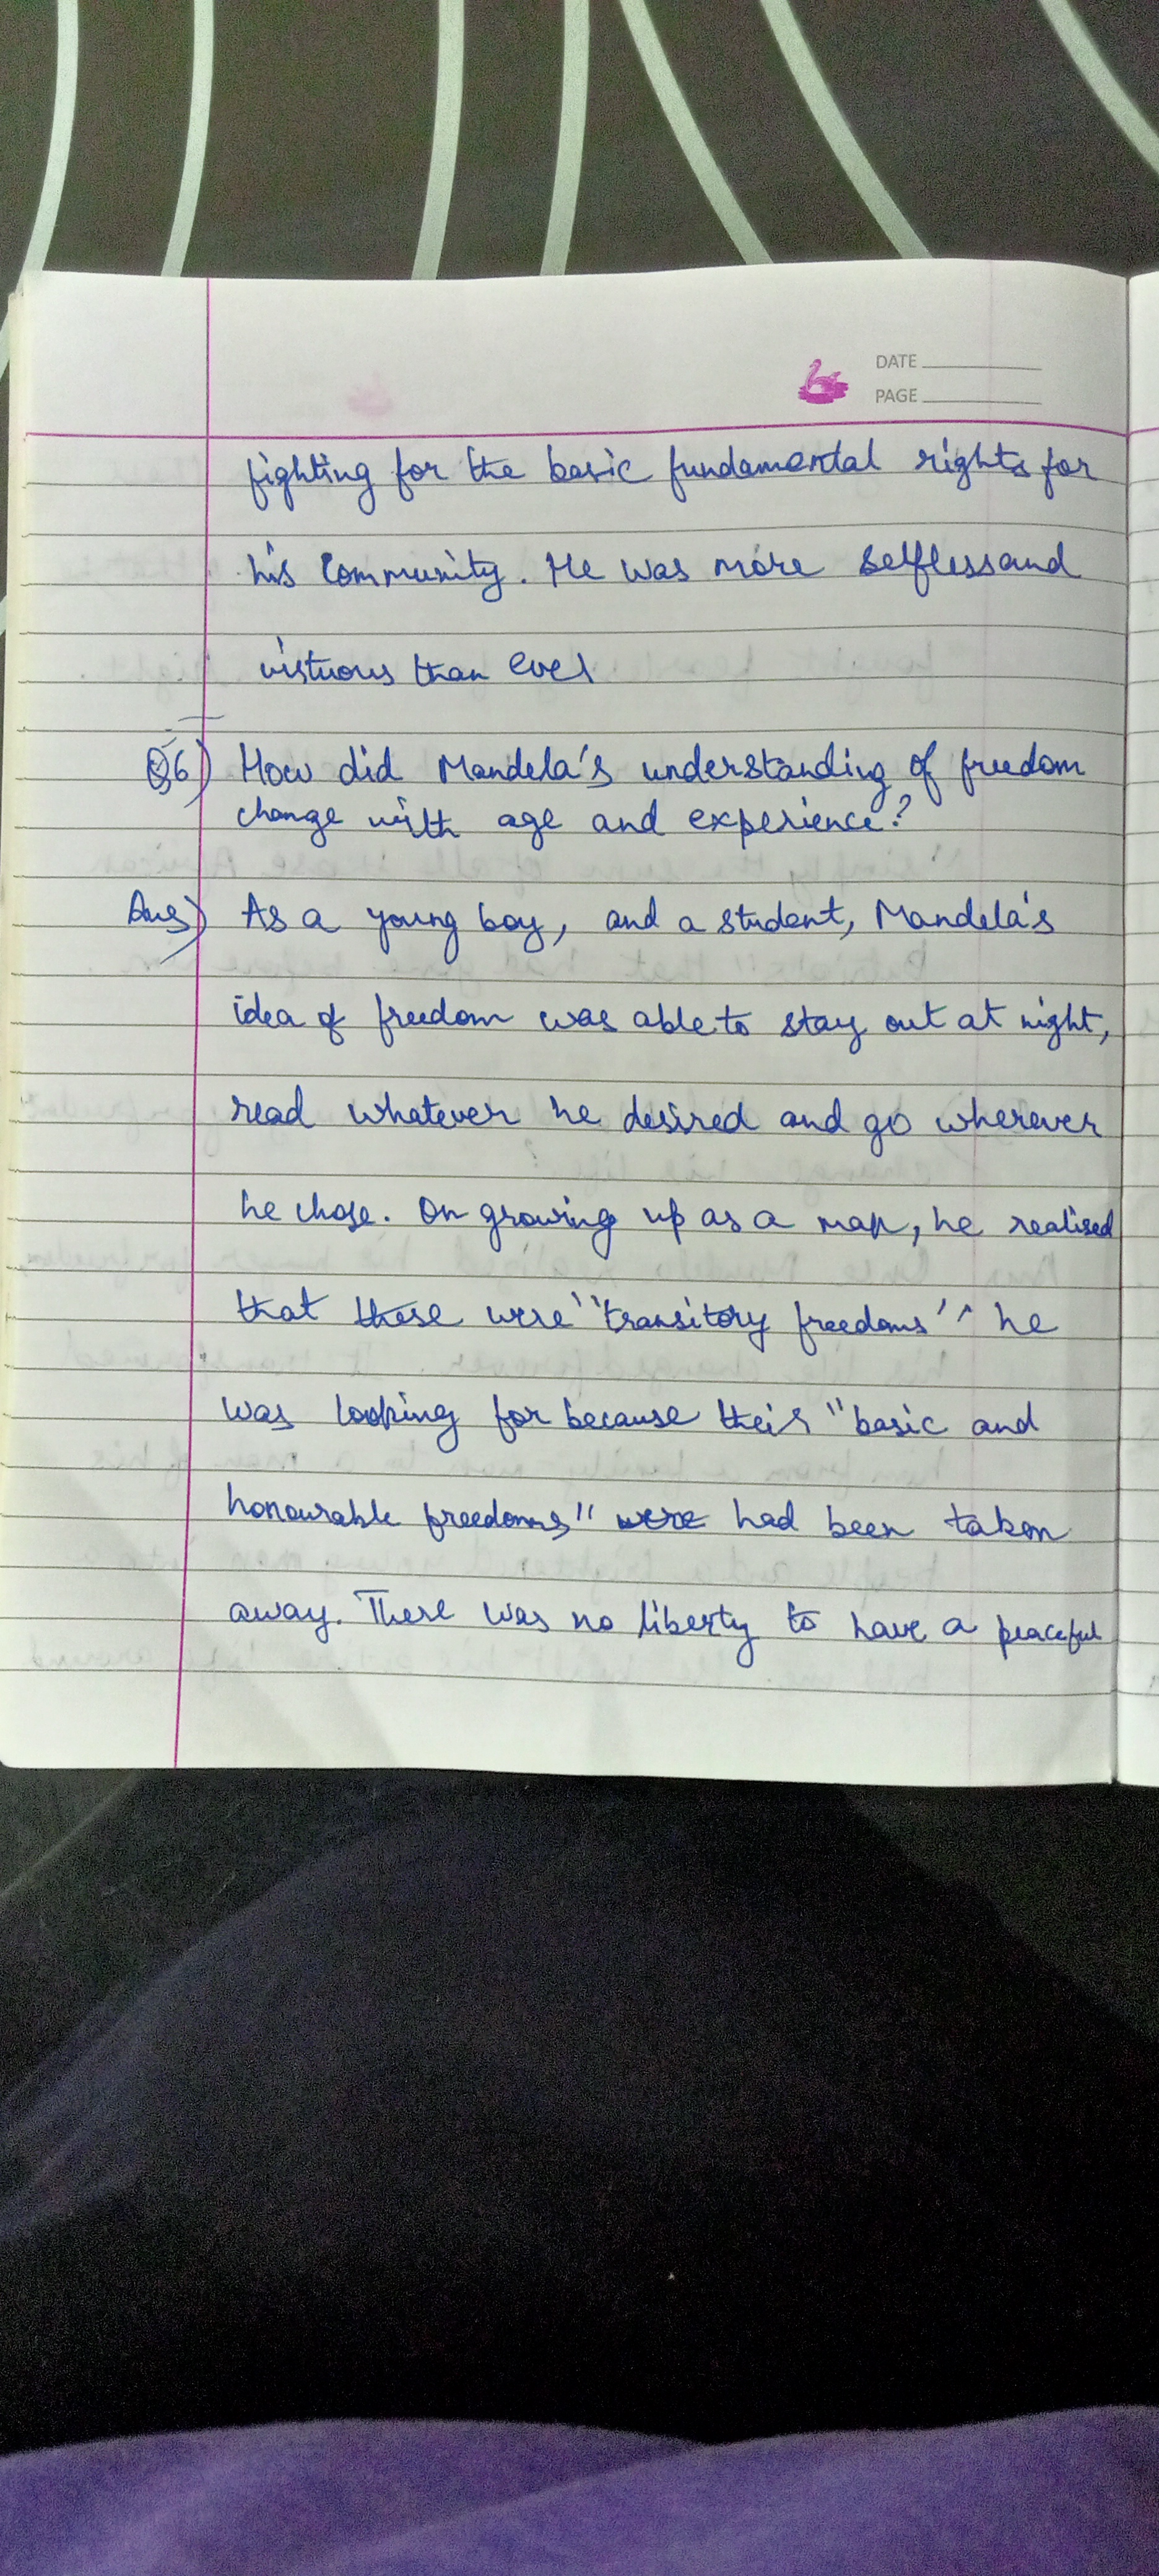 DATE
PAGE
fighting for the basic fundamental rights for
his Community. He was more selfless and
virtuous than ever
Q6) How did Mandela's understanding of freedom
change with age and experience?
Ans) As a young boy, and a student, Mandela's
idea of freedom was able to stay out at night,
read whatever he desired and go wherever
he chose. On growing up as a man, he realised
that these were "transitory freedoms" he
was looking for because their "basic and
honourable freedoms" were had been taken
away. There was no liberty to have a peaceful